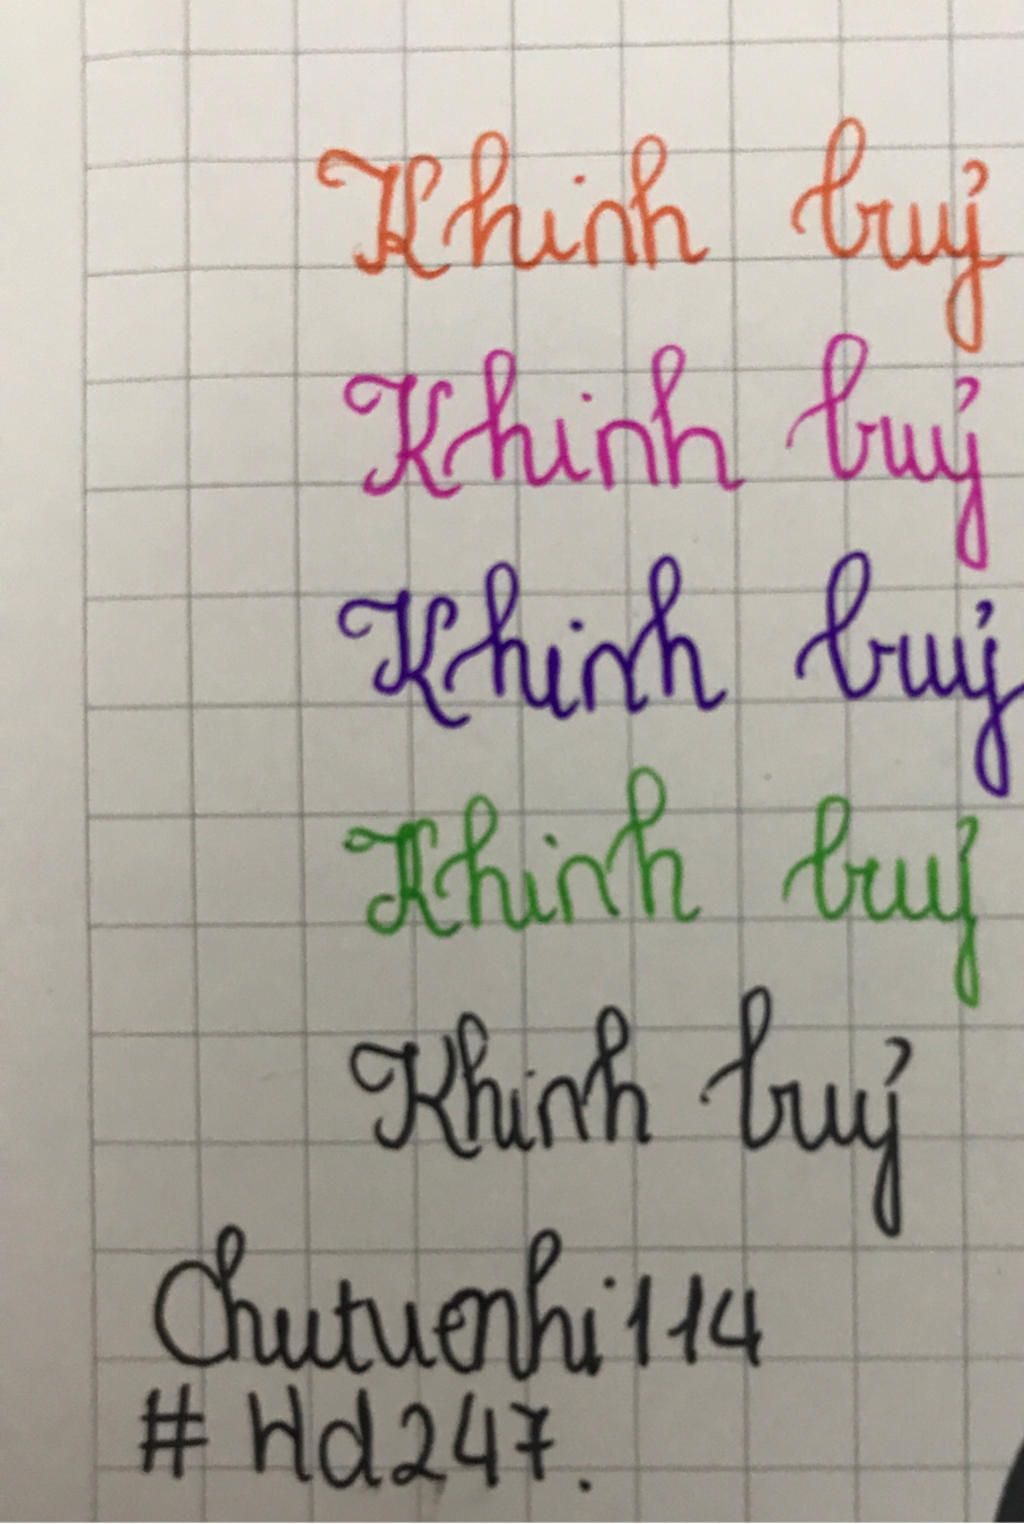 Khinh buỷ
Khinh buỷ
Khinh buỷ
Khinh buỷ
Khinh buỷ
Chutuenhi114
# Hd247.